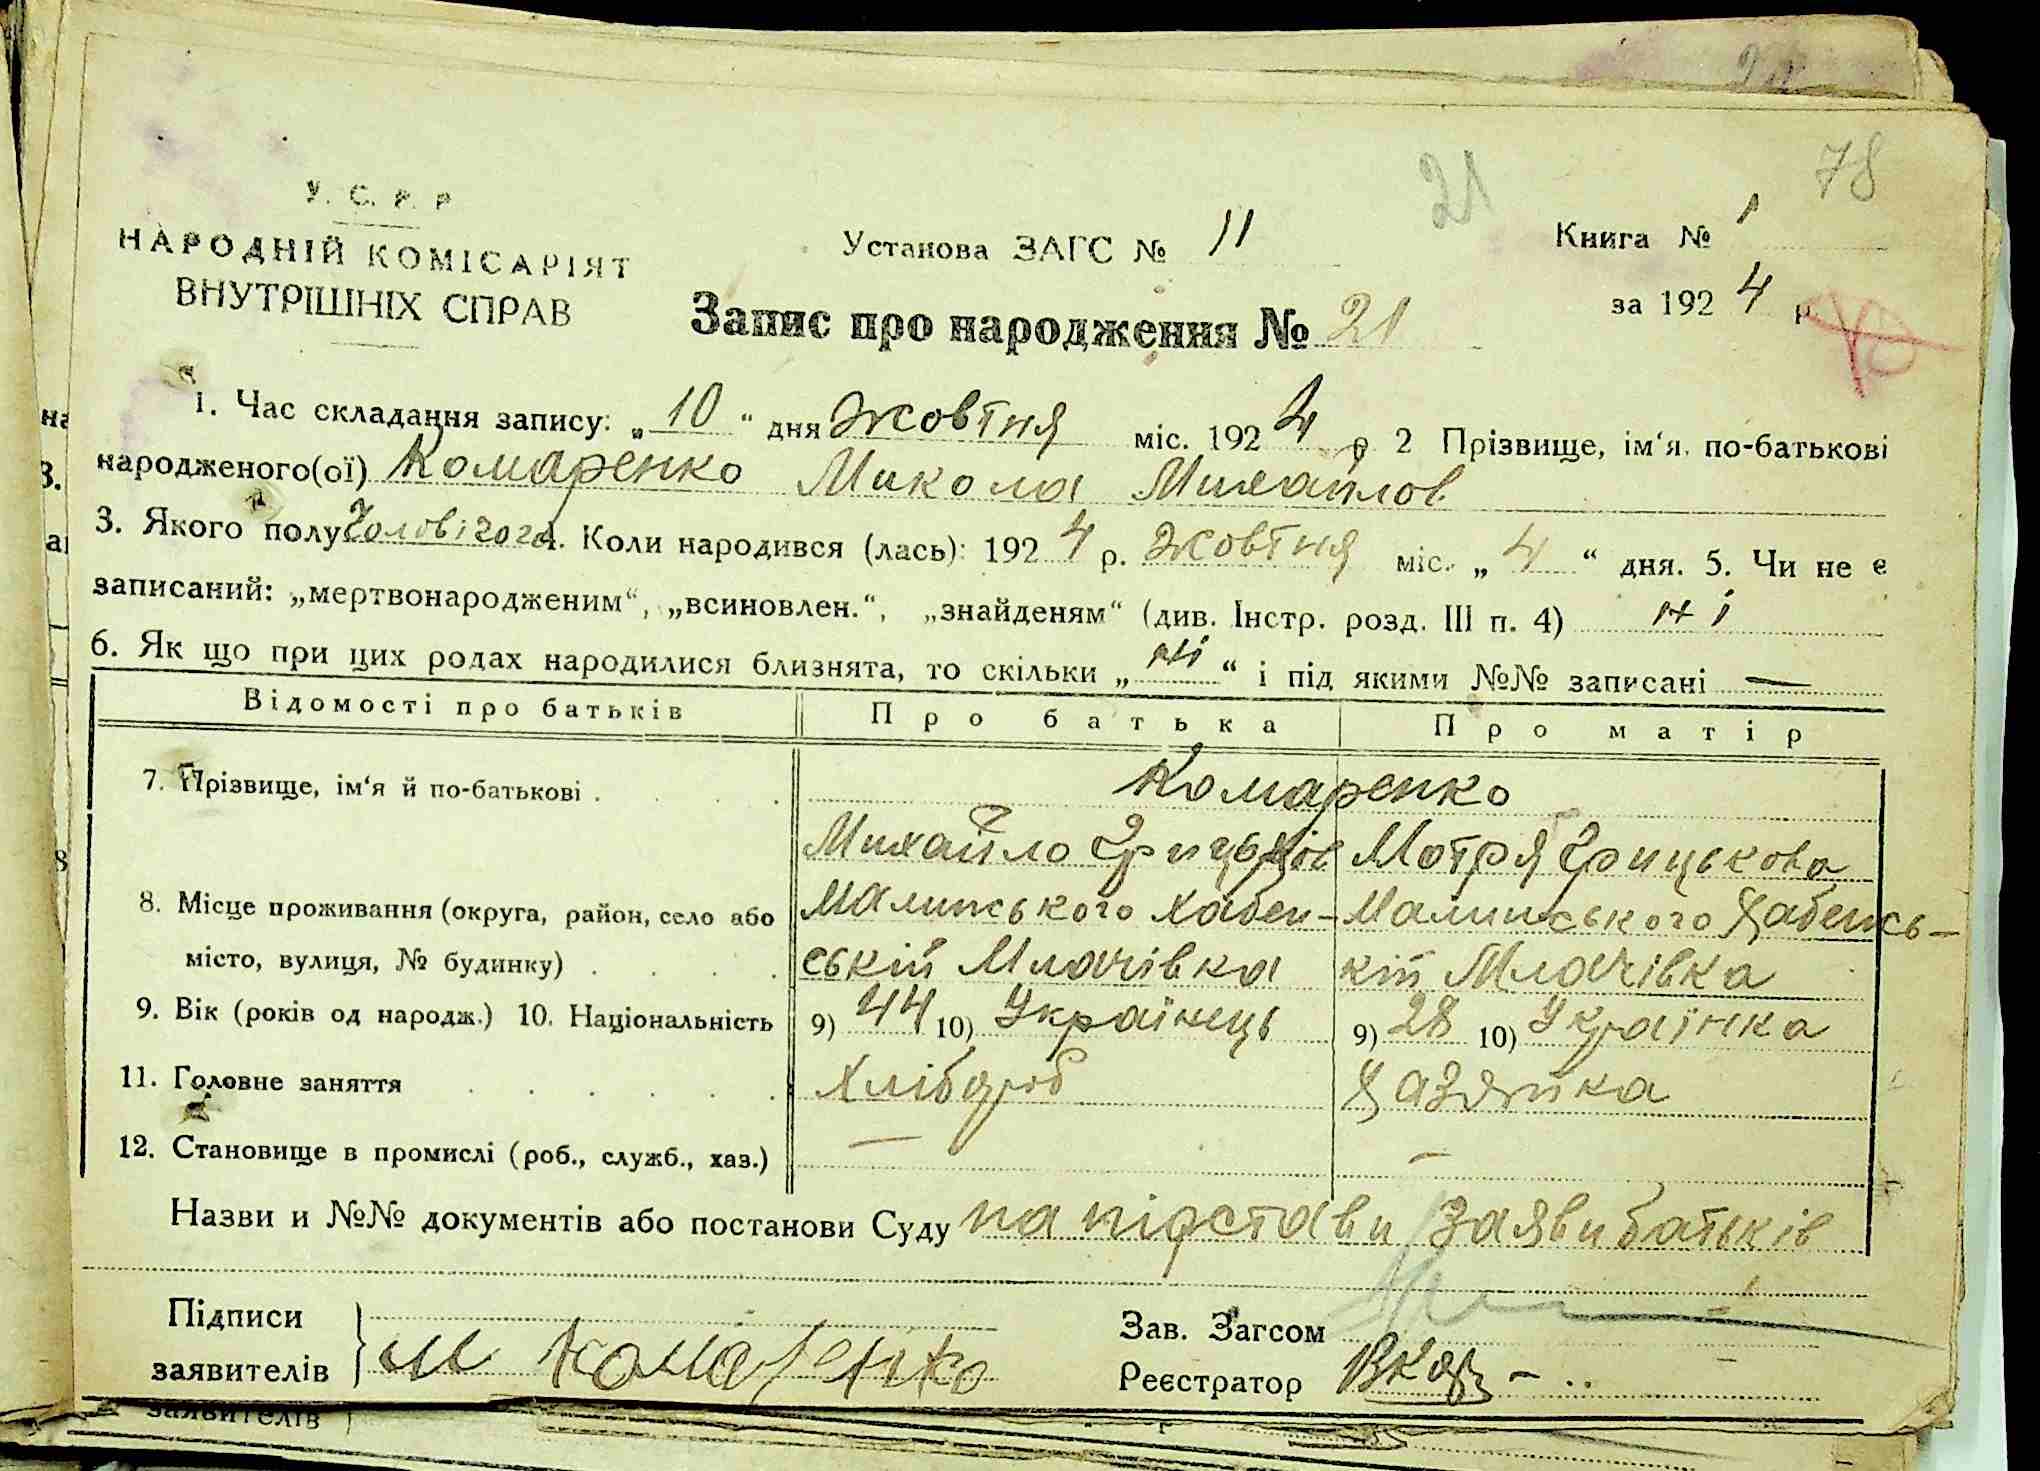 78
21
У. С. Р. Р
НАРОДНІЙ КОМІСАРІЯТ
ВНУТРІШНІХ СПРАВ
Установа ЗАГС № 11
Книга № 1
за 1924 р.
Запис про народження № 21
1. Час складання запису: „10“ дня Жовтня міс. 1924 р 2 Прізвище, ім‘я, по-батькові
народженого(ої) Комаренко Микола Михайлов
3. Якого полу Чоловічого 4. Коли народився (лась): 1924 р. Жовтня міс. „4“ дня. 5. Чи не є
записаний: „мертвонародженим“, „всиновлен.“, „знайденям“ (див. Інстр. розд. III п. 4) ні
6. Як що при цих родах народилися близнята, то скільки „ні“ і під якими №№ записані —
Відомості про батьків Про батька Про матір
7. Прізвище, ім‘я й по-батькові . Комаренко
Михайло Грицьків Мотря Грицькова
8. Місце проживання (округа, район, село або Малинського Хабен- Малинського Хабенсь-
місто, вулиця, № будинку) . ській Млачівка кій Млачівка
9. Вік (років од народж.) 10. Національність 9) 44 10) Українець 9) 28 10) Українка
11. Головне заняття Хлібороб Хазяйка
12. Становище в промислі (роб., служб., хаз.) — —
Назви и №№ документів або постанови Суду на підстави заяви батьків
Підписи
заявителів
М Комаренко
Зав. Загсом
Реєстратор
заявителів